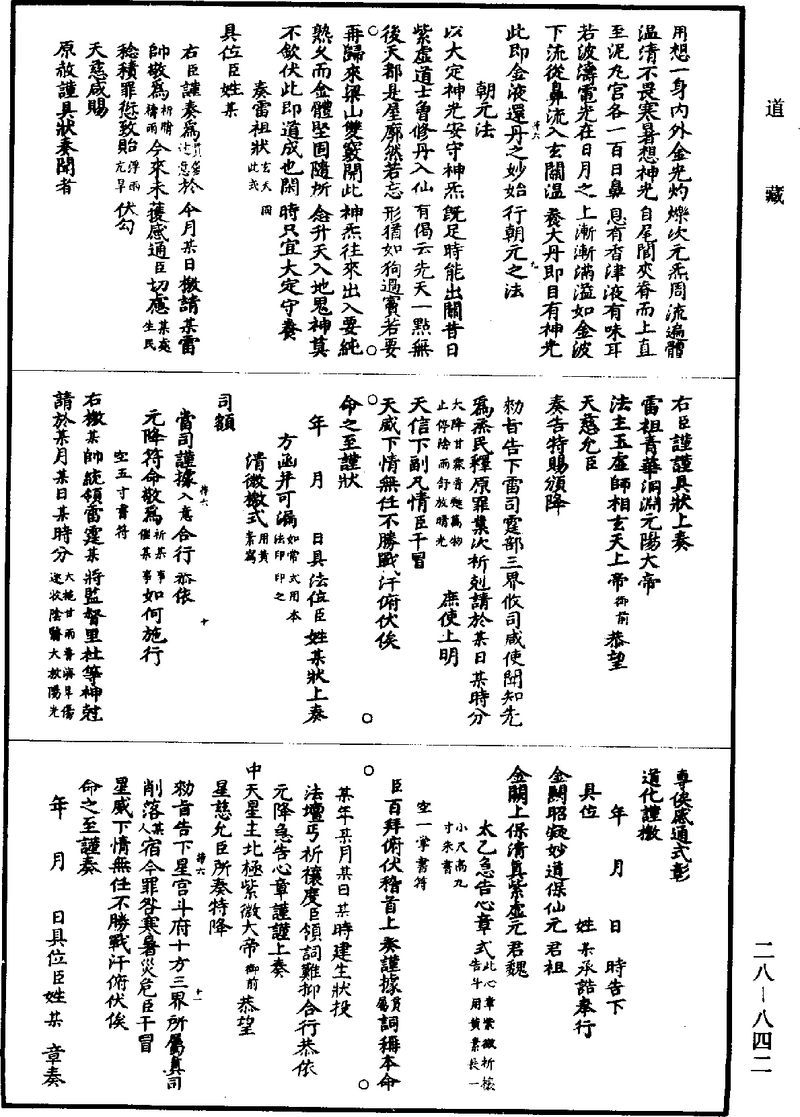 道藏
用想一身內外金光灼爍次元炁周流遍體
溫清不畏寒暑想神光自尾閭夾脊而上直
至泥丸宮各一百日鼻息有香津液有味耳
若波濤電光在日月之上漸漸滿溢如金波
下流從鼻流入玄關溫養大丹即目有神光
此即金液還丹之妙始行朝元之法
朝元法
以大定神光安守神炁旣足時能出關昔日
紫虛道士曾修丹入仙有偈云先天一點無
後天都是屋廓然若忘形猶如狗過竇若要
再歸來梁山雙竅開此神炁往來出入要純
熟久而金體堅固隨所念升天入地鬼神莫
不欽伏此即道成也閑時只宜大定守養
奏雷祖狀玄天同此式
具位臣姓某
右臣謹奏爲於今月某日檄請某雷
帥敬爲祈晴禱雨今來未獲感通臣切慮某處生民
稔積罪愆致貽淫雨亢旱伏勾
天慈咸賜
原赦謹具狀奏聞者
右臣謹謹具狀上奏
雷祖青華洞淵元陽大帝
法主玉虛師相玄天上帝御前恭望
天慈允臣
奏告特賜頒降
勑旨告下雷司霆部三界攸司咸使聞知先
爲烝民釋原罪業次祈剋請於某日某時分
大降甘霖普趣萬物止停陰雨舒放晴光庶使上明
天信下副凡情臣干冒
天威下情無任不勝戰汗俯伏俟
命之至謹狀
年月日具法位臣姓某狀上奏
方函并可漏如常式用本法印印之
清微檄式用黃素寫
司額
當司謹據入意合行恭依
元降符命敬爲祈某事催某事如何施行
空五寸書符
右檄某帥統領雷霆某將監督里社等神剋
請於某月某日某時分大施甘雨普濟旱傷速收陰翳大放陽光
專俟感通式彰
道化謹檄
年月日時告下
具位姓某承誥奉行
金闕昭凝妙道保仙元君祖
金闕上保清真紫虛元君魏
太乙急告心章式此心章紫微祈禳告斗用黃素長一小尺高九寸朱書
空一掌書符
臣百拜俯伏稽首上奏謹據貫屬詞稱本命
某年某月某日某時建生狀投
法壇丐祈禳度臣領詞難抑合行恭依
元降急告心章謹謹上奏
中天星主北極紫微大帝御前恭望
星慈允臣所奏特降
勑旨告下星宮斗府十方三界所屬真司
削落某人宿今罪咎寒暑災危臣干冒
星威下情無任不勝戰汗俯伏俟
命之至謹奏
年月日具位臣姓某章奏
二八—八四二